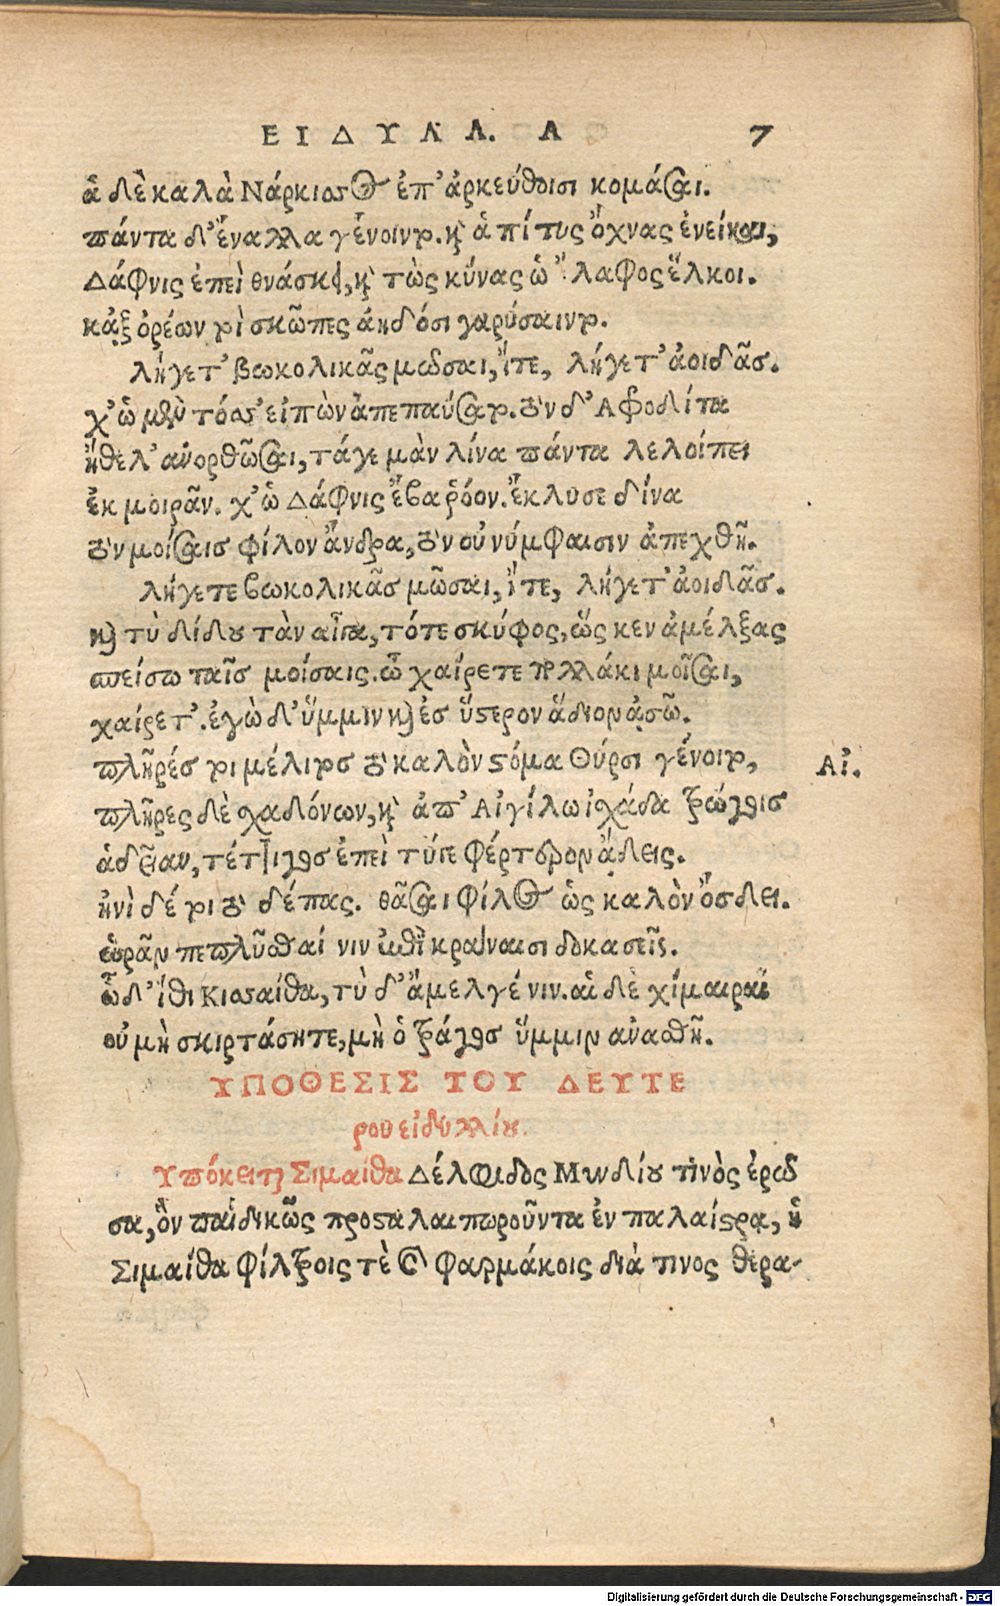 ΕΙΔΥΛΛ. Α 7
ἁ δὲ καλὰ Νάρκισσος ἐπ' ἀρκεύθοισι κομάσαι.
πάντα δ' ἔναλλα γένοιντο. καὶ ἁ πίτυς ὄχνας ἐνείκαι,
Δάφνις ἐπεὶ θνάσκει, καὶ τὼς κύνας ὡ 'λαφος ἕλκοι.
κἀξ ὀρέων τοὶ σκῶπες ἀηδόσι γαρύσαιντο.
λήγετ' βωκολικᾶς μῶσαι, ἴτε, λήγετ' ἀοιδᾶσ.
χ' ὡ μὲν τόσσ' εἰπὼν ἀπεπαύσατο. τὸν δ' Αφροδίτα
ἤθελ' ἀνορθῶσαι, τά γε μὰν λίνα πάντα λελοίπει
ἐκ μοιρᾶν. χ' ὡ Δάφνις ἔβα ῥόον. ἔκλυσε δίνα
τὸν μοίσαις φίλον ἄνδρα, τὸν οὐ νύμφαισιν ἀπεχθῆ.
λήγετε βωκολικᾶσ μῶσαι, ἴτε, λήγετ' ἀοιδᾶσ.
καὶ τὺ δίδου τὰν αἶγα, τό τε σκύφος, ὥς κεν ἀμέλξας
σπείσω ταῖσ μοίσαις. ὦ χαίρετε πολλάκι μοῖσαι,
χαίρετ'. ἐγὼ δ' ὔμμιν καὶ ἐσ ὕστερον ἅδιον ᾀσῶ.
πλῆρές τοι μέλιτος τὸ καλὸν στόμα Θύρσι γένοιτο, Αἰ.
πλῆρες δὲ σχαδόνων, καὶ ἀπ' Αἰγίλω ἰσχάδα τρώγοισ
ἁδεῖαν, τέττιγος ἐπεὶ τύγε φέρτερον ᾄδεις.
ἠνὶ δέ τοι τὸ δέπας. θᾶσαι φίλος ὡς καλὸν ὄσδει.
ὡρᾶν πεπλῦσθαί νιν ἐπὶ κράναισι δοκασεῖς.
ὧδ' ἴθι Κισσαίθα, τὺ δ' ἄμελγέ νιν. αἱ δὲ χίμαιραι
οὐ μὴ σκιρτάσητε, μὴ ὁ τράγοσ ὔμμιν ἀναστῆ.
ΥΠΟΘΕΣΙΣ ΤΟΥ ΔΕΥΤΕ
ρου εἰδυλλίου.
Υπόκειται Σιμαίθα Δέλφιδος Μυνδίου τινὸς ἐρῶ
σα, ὃν παιδικῶς προσταλαιπωροῦντα ἐν παλαίστρᾳ, ἡ
Σιμαίθα φίλτροις τὲ καὶ φαρμάκοις διά τινος θερα-
Digitalisierung gefördert durch die Deutsche Forschungsgemeinschaft - DFG